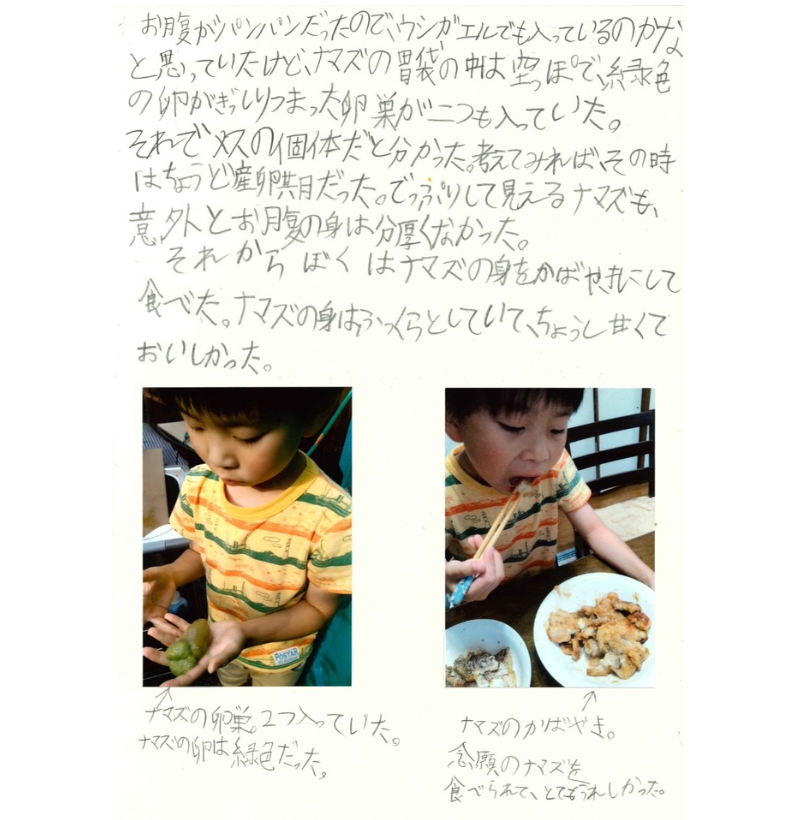 お腹がパンパンだったので、ウシガエルでも入っているのかな
と思っていたけど、ナマズの胃袋の中は空っぽで、緑色
の卵がぎっしりつまった卵巣が二つも入っていた。
それでメスの個体だと分かった。考えてみれば、その時
はちょうど産卵期だった。でっぷりして見えるナマズも、
意外とお腹の身は分厚くなかった。
それからぼくはナマズの身をかばやきにして
食べた。ナマズの身はふっくらとしていて、ちょっし甘くて
おいしかった。
ナマズの卵巣。2つ入っていた。
ナマズの卵は緑色だった。
ナマズのかばやき。
念願のナマズを
食べられて、とてもうれしかった。